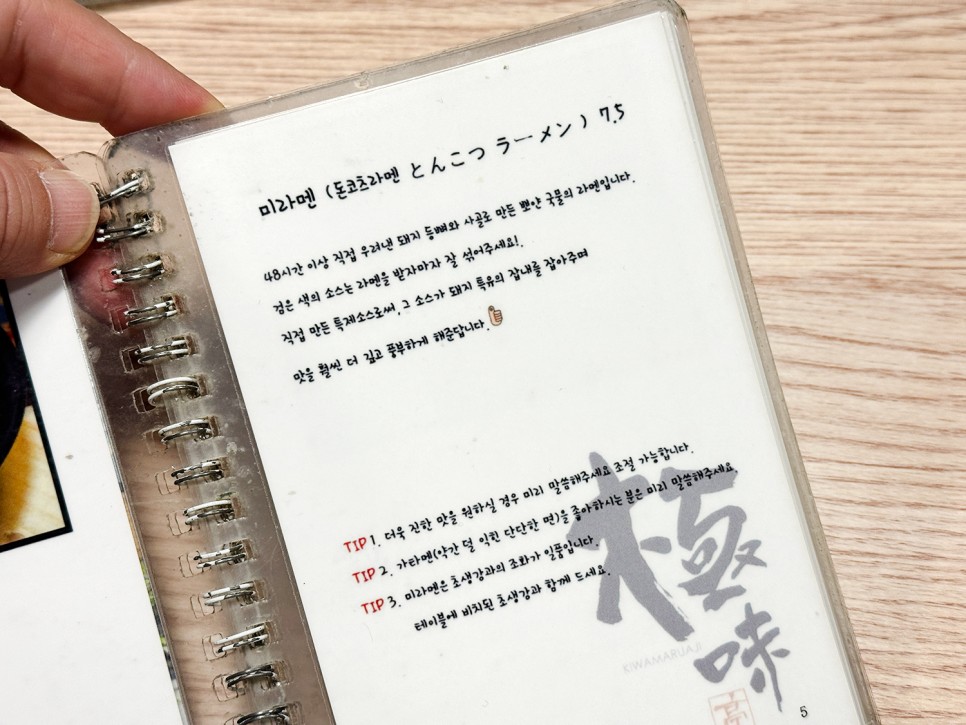 미라멘 (돈코츠라멘 とんこつ ラーメン) 7.5
48시간 이상 직접 우려낸 돼지 등뼈와 사골로 만든 뽀얀 국물의 라멘입니다.
검은 색의 소스는 라멘을 받자마자 잘 섞어주세요!.
직접 만든 특제소스로써, 그 소스가 돼지 특유의 잡내를 잡아주며
맛을 훨씬 더 깊고 풍부하게 해준답니다.
TIP 1. 더욱 진한 맛을 원하실 경우 미리 말씀해주세요 조절 가능합니다.
TIP 2. 가타멘(약간 덜 익힌 단단한 면)을 좋아하시는 분은 미리 말씀해주세요.
TIP 3. 미라멘은 초생강과의 조화가 일품입니다.
테이블에 비치된 초생강과 함께 드세요.
極味
KIWAMARUAJI
5